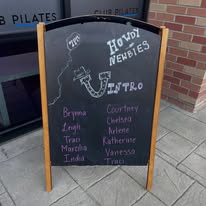 CLUB PILATES
CLUB PILATES
HOWDY
NEWBIES
INTRO
Brynna
Leigh
Traci
Marcha
India
Courtney
Chelsea
Arlene
Katherine
Vanessa
Traci